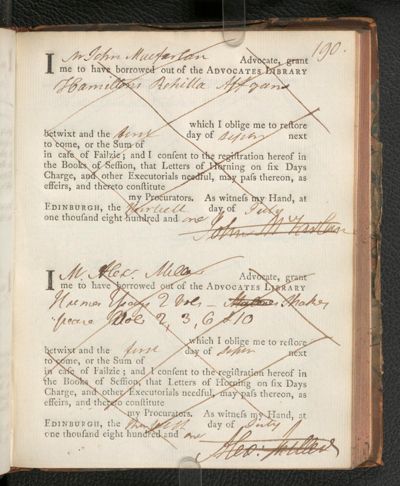 190.
I Mr John Macfarlan Advocate, grant
me to have borrowed out of the ADVOCATES LIBRARY
Hamiltons Rohilla Afgans
which I oblige me to reſtore
betwixt and the first day of next
to come, or the Sum of
in caſe of Failzie; and I conſent to the regiſtration hereof in
the Books of Seſſion, that Letters of Horning on ſix Days
Charge, and other Executorials needful, may paſs thereon, as
effeirs, and thereto conſtitute
my Procurators. As witneſs my Hand, at
EDINBURGH, the day of July
one thouſand eight hundred and one
John McFarlan
I M. Alex. Miller Advocate, grant
me to have borrowed out of the ADVOCATES LIBRARY
Humes Essays 2 vols – Shakes
peare Vols 2, 3, 6 & 10
which I oblige me to reſtore
betwixt and the first day of next
to come, or the Sum of
in caſe of Failzie; and I conſent to the regiſtration hereof in
the Books of Seſſion, that Letters of Horning on ſix Days
Charge, and other Executorials needful, may paſs thereon, as
effeirs, and thereto conſtitute
my Procurators. As witneſs my Hand, at
EDINBURGH, the day of July
one thouſand eight hundred and one
Alex: Miller